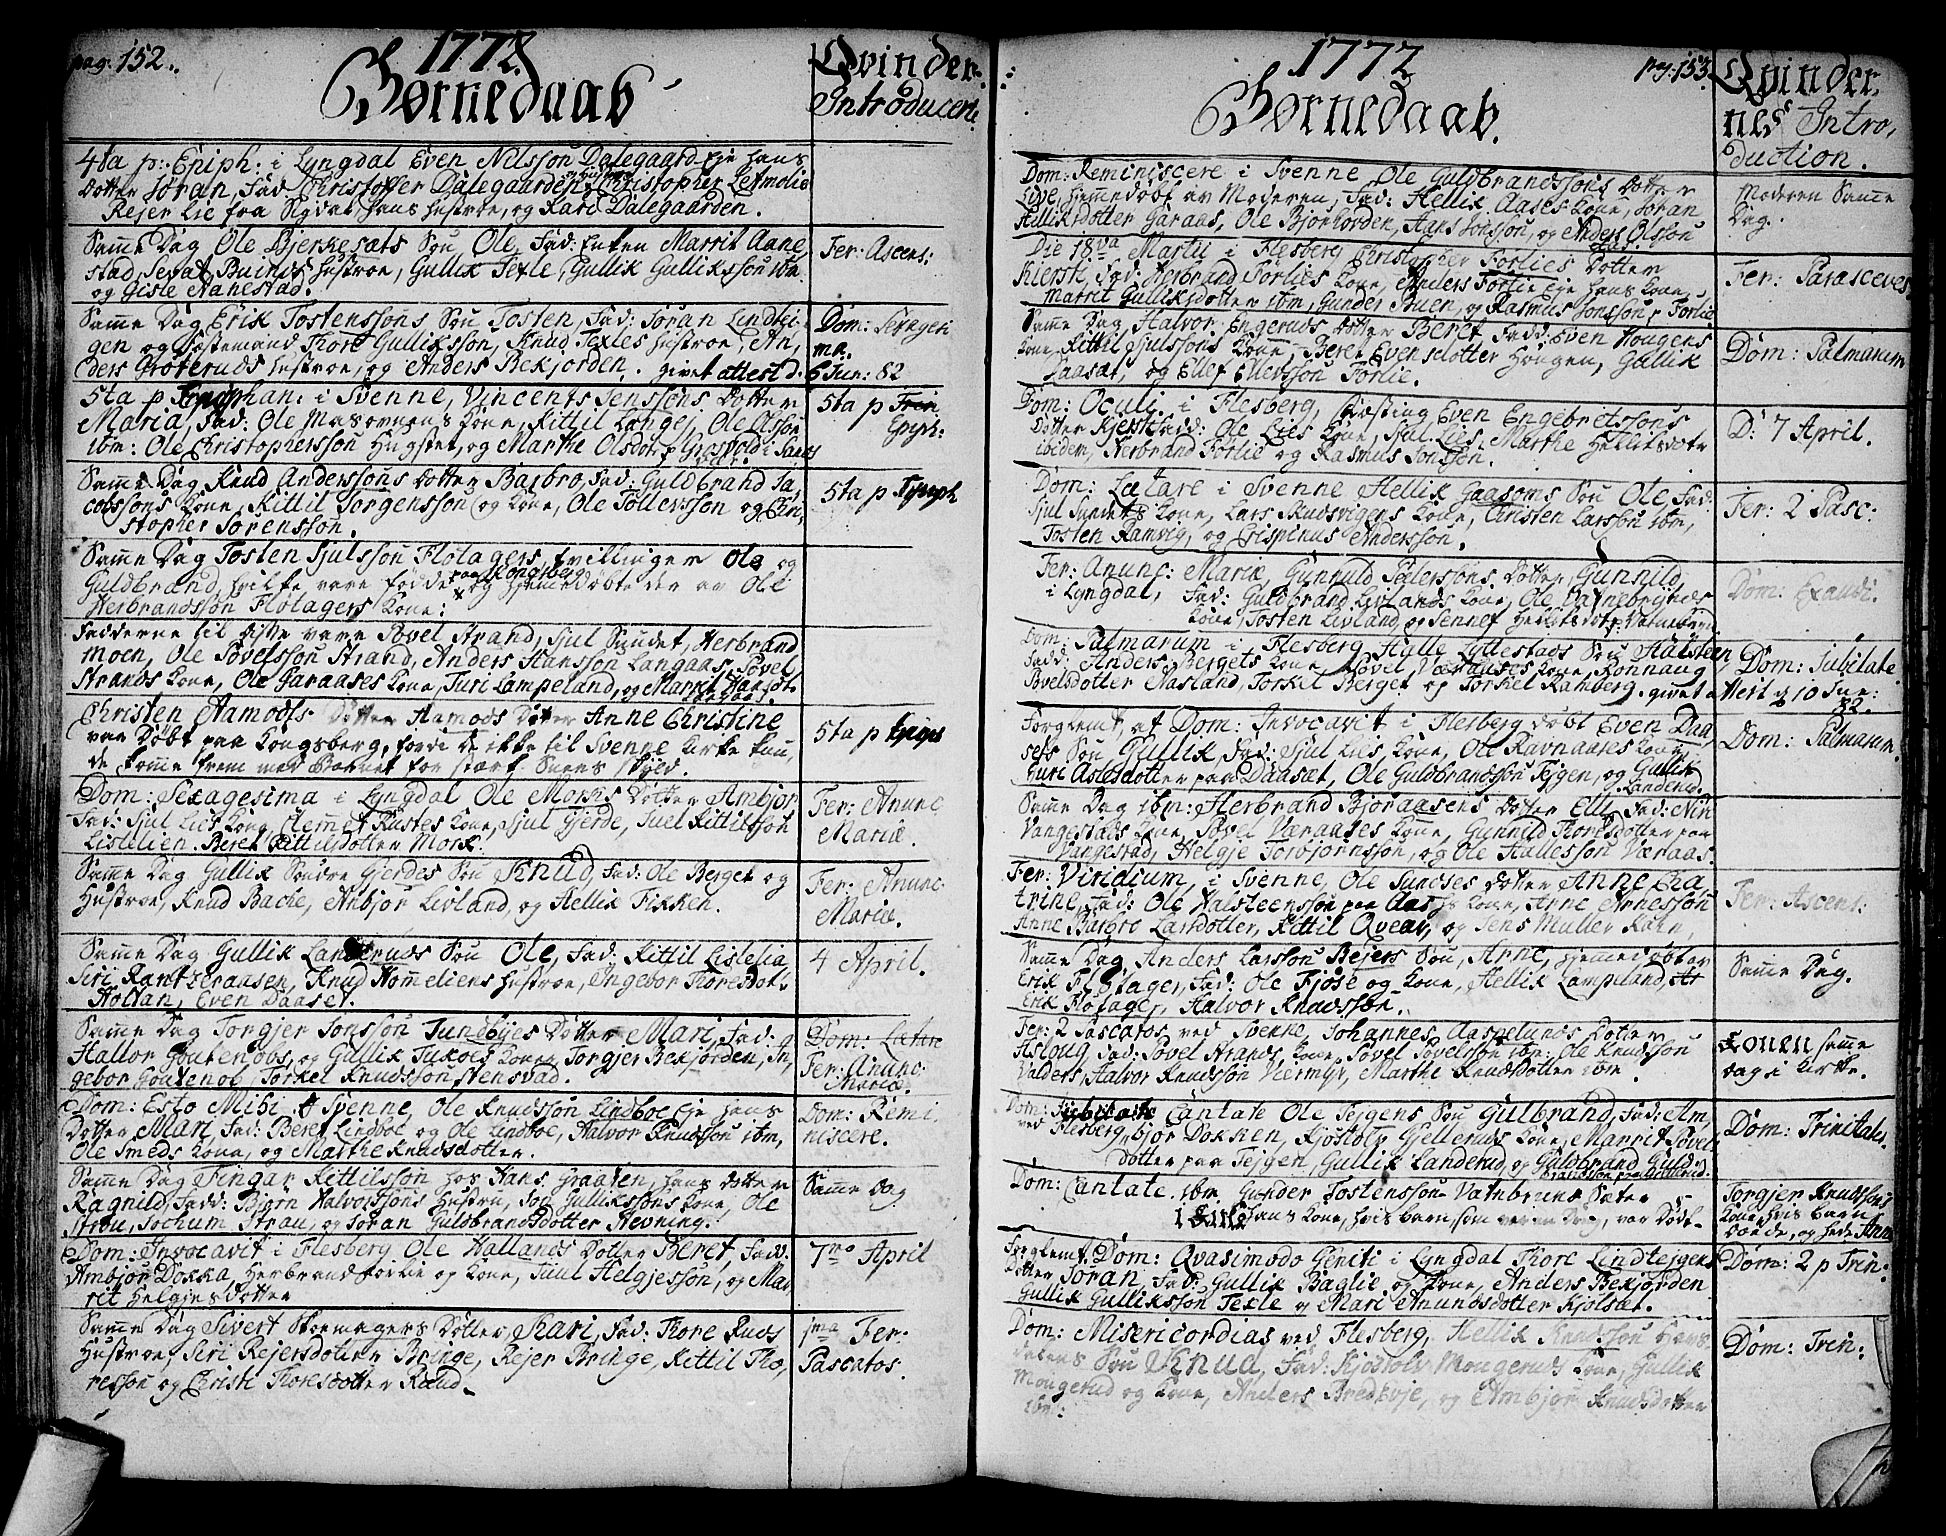 pag: 152.
1772.
Børnedaab
Qvinder
Introducert
4ta p: Epiph. i Lyngdal Even Nilsson Dalegaard Eje hans
Dotter Jøran, Fad: Christoffer Dalegaarden, Christopher
Rejer Lie fra Sigdal hans Hustroe, og Kari Dalegaarden.
Samme Dag Ole Bjerkesæts Søn Ole, Fad: Enken Marrit Aane
stad, Sevat Buinds Hustroe, Gullik Texle, Gullik Gulliksson ibm
og Gisle Aanestad.
Fer: Ascens:
Samme Dag Erik Tostenssøns Søn Tosten, Fad: Jøran Lindtei
gen og Fæstemand Thore Gulliksson, Knud Texles Hustroe, An,
ders Grøteruds Hustroe, og Anders Bekjorden. givet attest d.
Dom: Sexagesi
ma.
6 Jun: 82
5ta p Epiphan: i Svenne, Vincents Jenssens Dotter
Maria, Fad: Ole Masovnens Kone, Kittil Lange, Ole Olsson
ibm: Ole Christophersson Hugstet, og Marthe Olsdotr i Sands
5ta p
Epiph:
Samme Dag Knud Anderssons Dotter Barbro, Fad: Guldbrand Ja,
cobssons Kone, Kittil Torgensson og Kone, Ole Tollevsson og Chri,
stopher Sørensson.
5ta p Epiph
Samme Dag Tosten Sjulsson Flotagers tvillinger Ole og
Guldbrand, hvilke vare fødde paa Kongsberg og hjemmedøbte der av Ole
Herbrandsson Flotagers Kone:
Fadderne til disse vare Povel Strand, Sjul Sundet, Herbrand
Moen, Ole Povelsson Strand, Anders Hansson Langaas, Povel
Strands Kone, Ole Garaases Kone, Turi Lampeland, og Marrit
Christen Aamodts Dotter Aamods Dotter Anne Christine
var døbt paa Kongsberg, fordi de ikke til Svenne Kirke kun,
de komme frem med Barnet for stærk Snees skyld.
5ta p Epiph
Dom: Sexagesima i Lyngdal Ole Morks Dotter Ambjør
Fad: Sjul Lies Kone, Clemmet Rustes Kone, Sjul Gjerde, Juel Kittilsson
Lislelien. Beret Kittilsdotter Mork.
Fer: Anunc
Mariæ.
Samme Dag Gullik Søndre Gjerdes Søn Knud, Fad: Ole Berget og
Hustroe, Knud Bache, Anbjør Livland, og Hellik Fikken.
Fer: Anunc
Mariæ.
Samme Dag Gullik Landeruds Søn Ole, Fad: Kittil Lislelia
Siri Kantzeraasen, Knud Hommeliens Hustroe, Ingebor Thoresdot:
Holtan, Even Daaset.
4 April.
Samme Dag Torgjer Jonsson Jundbyes Dotter Mari, Fad:
Halvor og Gullik Kone, Torgjer Bekjorden, In,
gebor Torkel Knudsson Stensvad.
Dom: Lætare
Fer: Anunc:
Mariæ
Dom: Esto Mihi i Svenne, Ole Knudsson Lindboe Eje hans
Dotter Mari, Fad: Beret Lindboe og Ole Lindboe, Halvor Knudsson ibm,
Ole Smeds Kone, og Marthe Knudsdotter.
Dom: Remi
niscere.
Samme Dag Fingar Kittilsson hos Hans Graaten, hans Dotter
Ragnild, Fadd: Bjørn Halvorssons Hustru, Gulliksons Kone, Ole
Strøu, Jochum Strau, og Jøran Guldbrandsdotter Hevning.
Samme Dag
Dom: Invocavit i Flesberg Ole Hallands Dotter Beret, Fad:
Ambjør Dokka, Herbrand Forlie og Kone, Juul Helgjesson, og Mar,
rit Helgjesdotter
7no April
Samme Dag Sivert Skomagers Dotter, Kari, Fad: Thore Ruds
Hustroe, Siri Rejersdotter Bringe, Rejer Bringe, Kittil Tho,
resson og Christi Thoresdotter Ruud.
Fer:
Pascatos.
1772
Børnedaab.
pag: 153.
Qvinder,
nes Intro,
duction.
Dom: Reminiscere i Svenne Ole Guldbrandssons Dotter
Lisle, hjemmedøbt av Moderen, Fad: Hellik Aases Kone, Jøran
Helliksdotter Garaas, Ole Bjørkorden, Hans Jonsson, og Anders Olsson
Moderen Samme
Dag.
Die 18va Martii i Flesberg Christopher Forlies Dotter
Kiersti, Fad: Herbrand Forlies Kone, Anders Forlie Eje hans Kone,
Marrit Gulliksdotter ibm, Gunder Buen, og Rasmus Jonsson, Forlie
Fer: Parasceves
Samme Dag, Halvor Engeruds Dotter Beret, Fadd: Even Hougens
Kone, Kittil Sjulssons Kone, Beret Evensdotter Hougen, Gullik
Daaset, og Ellef Ellefsson Forlie.
Dom: Palmarum
Dom: Oculi i Flesberg, Even Engebretssons
Dotter Kjersti, Fad: Ole Lies Kone, Sjul Lies, Marthe Helliksdotr
ibidem, Herbrand Forlie og Rasmus Jonsson.
D: 7 April.
Dom: Lætare i Svenne Hellik Gaasoms Søn Ole, Fad:
Sjul Sundets Kone, Lars Skudsvigens Kone, Christen Larsson ibm,
Tosten Ramvig, og Crispinus Andersson.
Fer: 2 Pasc:
Fer: Anunc: Mariæ, Gunnuld Pedersons Dotter, Gunnild,
i Lyngdal, Fad: Guldbrand Livlands Kone, Ole Vatnebryner
Kone, Tosten Livland, og Jennet
Dom: Exaudi.
Dom: Palmarum i Flesberg Hylle Lyllestads Søn Halsteen
Fadd: Anders Bergets Kone, Povel Væraases Kone, Ronnaug
Povelsdotter Aasland, Torkel Berget og Torkel Ramberg. givet a
Dom: Jubilate
test d 10 Jun:
82.
Forglemt, at Dom: Invocavit i Flesberg døbt Even Daa
sets Søn Gullik, Fad: Sjul Lies Kone, Ole Ravnaases Kone,
Guri Aslesdotter paa Daaset, Ole Guldbrandsson Tejgen, og Gullik
Landerud.
Dom: Palmarum.
Samme Dag ibm: Herbrand Bjøraasens Dotter Elli, Fad:
Vangestads Kone, Povel Væraases Kone, Gunnild Thoresdotter paa
Vangestad, Helgje Torbjørnsson, og Ole Hallesson Væraas.
Fer: Viridium, i Svenne, Ole Sundses Dotter Anne Cha,
trine, Fad: Ole Halsteensson paa Aas hs Kone, Arne Arnesson
Anne Barbro Larsdotter, Kittil Qveær, og Jens Muller Rasn,
Fer: Ascens:
Samme Dag Anders Larsson Bejers Søn, Arne, hjemmedøbt av
Erik Flotager, Fad: Ole Fjøse og Kone, Hellik Lampeland,
Erik Flotager, Halvor Knudsson.
Samme Dag.
Fer: 2 Pascatos ved Svenne, Johannes Aaspelunds Dotter
Asloug, Fad: Povel Strands Kone, Povel Povelsson ibm: Ole Knudsson
Valders, Halvor Knudsson Værmyr, Marthe Knudsdotter ibm.
Konen samme
dag i Kirke.
Dom: Cantate Ole Tejgens Søn Gulbrand, Fad: Am,
ved Flesberg, bjør Dokken, Kjøstolv Gjelleruds Kone, Marrit Povels
dotter paa Tejgen, Gullik Landerud, og Guldbrand Guld,
brandsson paa
Dom: Trinitatis.
Dom: Cantate. ibm. Gunder Tostensson Vatnbruns Sæter
hans Kone, hvis Barn som var død,
Torgjer Knudsons
Kone, hvis Barn
døde, og hede Anne
Forglemt. Dom: Qvasimodo Geniti i Lyngdal Thore Lindtejgens
Dotter Jøran, Fad: Gullik Baglie og Kone, Anders Bekjorden
Gullik Gulliksson Texle og Mari Amundsdotter Kjølsæt.
Dom: 2 p Trin:
Dom: Misericordias ved Flesberg, Hellik Knudsson
Søn Knud, Fad: Kjøstolv Mongeruds Kone, Gullik
Mongerud og Kone, Anders Bredevje, og Ambjør Knudsdotter
ibm:
Dom: Trin: